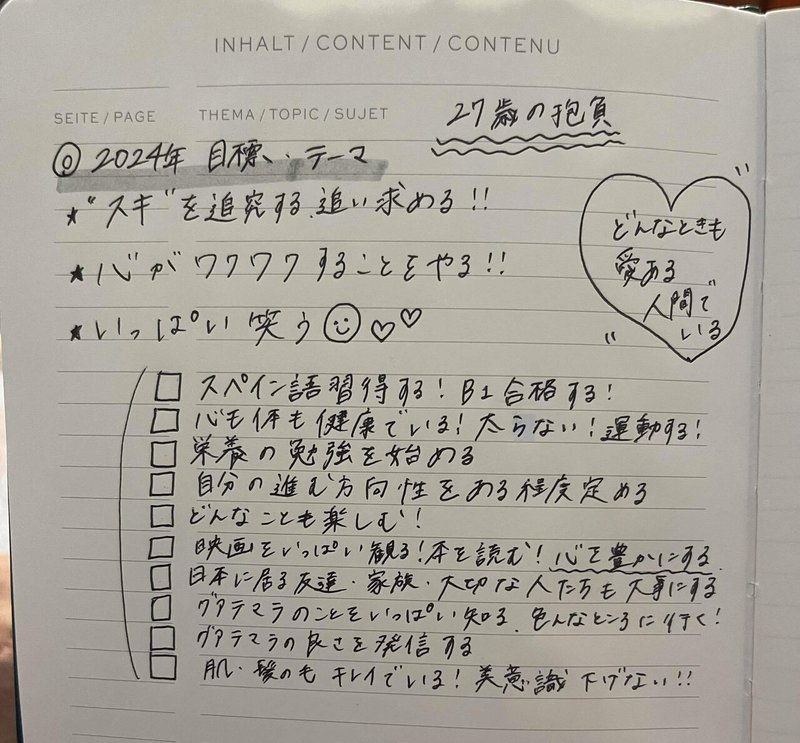 INHALT / CONTENT / CONTENU
SEITE / PAGE THEMA / TOPIC / SUJET
27歳の抱負
◎ 2024年 目標、テーマ
★ "スキ"を追究する、追い求める!!
★ 心がワクワクすることをやる!!
★ いっぱい笑う☺♡♡
"どんなときも
愛ある
人間で
いる"
□ スペイン語習得する! B1合格する!
□ 心も体も健康でいる! 太らない! 運動する!
□ 栄養の勉強を始める
□ 自分の進む方向性をある程度定める
□ どんなことも楽しむ!
□ 映画をいっぱい観る! 本を読む! 心を豊かにする.
□ 日本に居る友達・家族・大切な人たちも大事にする
□ グアテマラのことをいっぱい知る. 色んなところに行く!
□ グアテマラの良さを発信する
□ 肌・髪のもキレイでいる! 美意識下げない!!